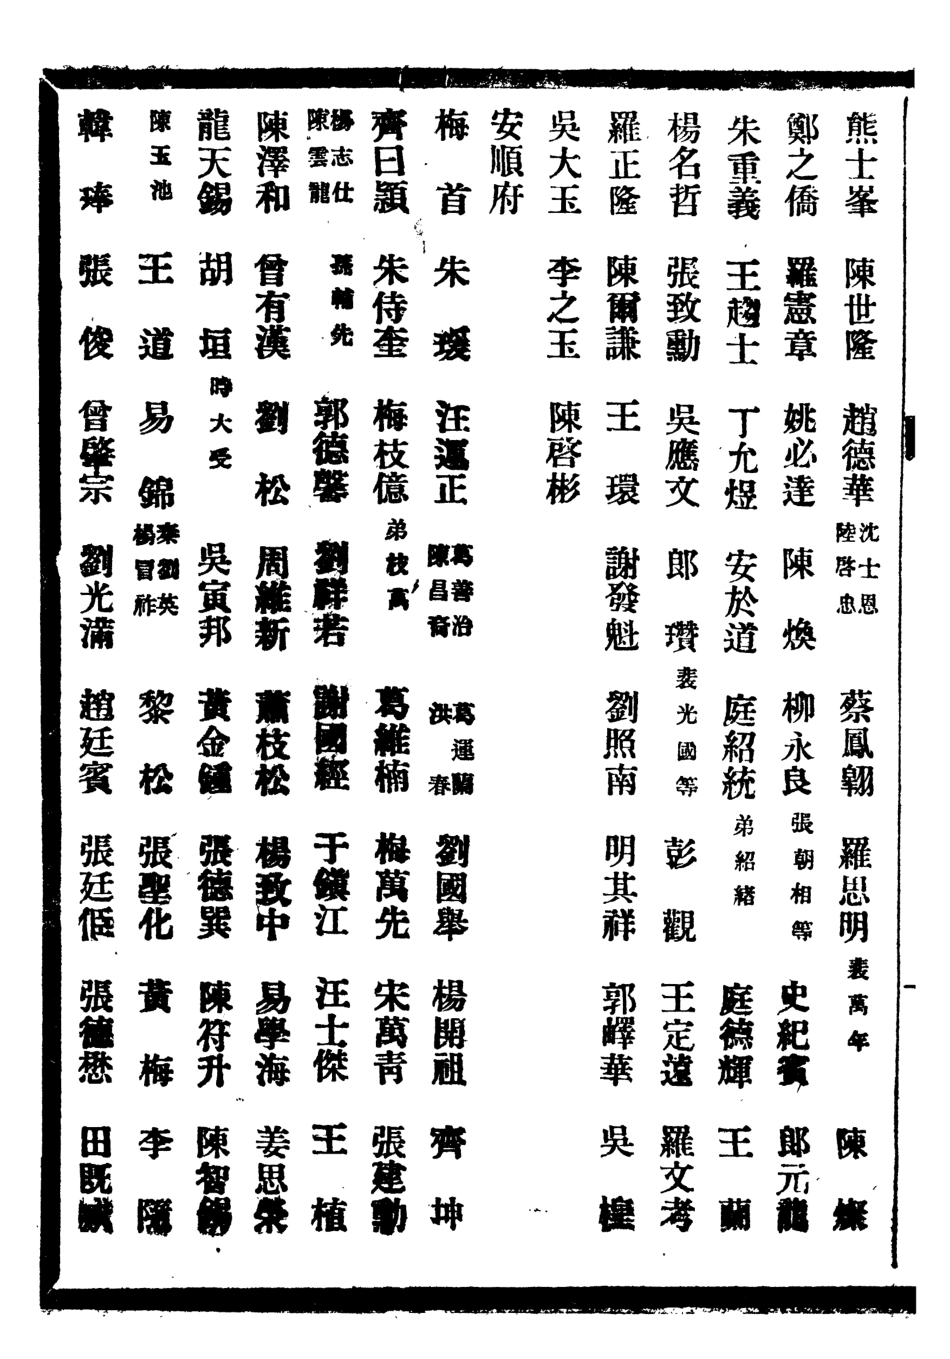 熊士峯 陳世隆 趙德華 沈士恩 陸啓忠 蔡鳳翱 羅思明 裴萬年 陳燦
鄭之僑 羅憲章 姚必達 陳煥 柳永良 張朝相等 史紀賓 郎元龍
朱重義 王趨士 丁允煜 安於道 庭紹統 弟紹緒 庭德輝 王蘭
楊名哲 張致勳 吳應文 郎瓚 裴光國等 彭觀 王定遠 羅文考
羅正隆 陳爾謙 王環 謝發魁 劉照南 明其祥 郭嶧華 吳楻
吳大玉 李之玉 陳啓彬
安順府
梅首 朱璦 汪運正 葛善治 陳昌裔 葛運蘭 洪春 劉國舉 楊開祖 齊坤
齊曰頴 朱侍奎 梅枝億 弟枝萬 葛維楠 梅萬先 宋萬靑 張建勳
楊志仕 陳雲龍 孫輔先 郭德馨 劉祥若 謝國經 于鎭江 汪士傑 王植
陳澤和 曾有漢 劉松 周維新 蕭枝松 楊致中 易學海 姜思榮
龍天錫 胡垣 時大受 吳寅邦 黃金鍾 張德巽 陳符升 陳智錫
陳玉池 王道 易錦 秦劉英 楊冒祚 黎松 張聖化 黃梅 李
韓琫 張俊 曾肇宗 劉光滿 趙廷賓 張廷 張德懋 田既